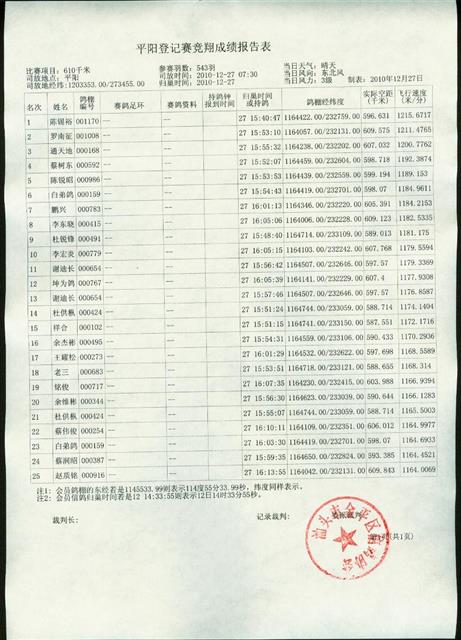 平阳登记赛竞翔成绩报告表
比赛项目:610千米 参赛羽数:543羽 当日天气:晴天
司放地点:平阳 司放时间:2010-12-27 07:30 当日风向:东北风
司放地经纬:1203353.00/273455.00 归巢时间:2010-12-27 当日风力:3级 制表:2010年12月27日
名次 姓名 鸽棚编号 赛鸽足环 赛鸽资料 持鸽钟报到时间 归巢时间或持鸽 鸽棚经纬度 实际空距(千米) 飞行速度(米/分)
1 陈锡裕 001170 -- -- 27 15:40:47 1164422.00/232759.00 596.631 1215.6717
2 罗南征 001008 -- -- 27 15:53:10 1164057.00/232131.00 609.575 1211.4765
3 通天地 000168 -- -- 27 15:55:32 1164238.00/232202.00 607.032 1200.7762
4 蔡树东 000592 -- -- 27 15:52:07 1164459.00/232604.00 598.718 1192.3874
5 陈锐昭 000986 -- -- 27 15:53:53 1164439.00/232559.00 599.194 1189.153
6 白弟鸽 000159 -- -- 27 15:54:43 1164419.00/232701.00 598.07 1184.9611
7 鹏兴 000783 -- -- 27 16:01:13 1164346.00/232220.00 605.391 1184.2153
8 李东晓 000415 -- -- 27 16:05:06 1164006.00/232228.00 609.123 1182.5335
9 杜锐锋 000491 -- -- 27 15:48:40 1164714.00/233109.00 589.013 1181.175
10 李宏炎 000779 -- -- 27 16:05:15 1164103.00/232242.00 607.768 1179.5594
11 谢迪长 000654 -- -- 27 15:56:42 1164507.00/232646.00 597.57 1179.3369
12 坤为鸽 000767 -- -- 27 16:05:39 1164141.00/232229.00 607.4 1177.9308
13 谢迪长 000654 -- -- 27 15:57:46 1164507.00/232646.00 597.57 1176.8587
14 杜供枞 000424 -- -- 27 15:51:24 1164744.00/233059.00 588.714 1174.1404
15 祥合 000102 -- -- 27 15:51:15 1164741.00/233150.00 587.551 1172.1716
16 余杰彬 000495 -- -- 27 15:54:31 1164559.00/233106.00 590.433 1170.2936
17 王耀松 000273 -- -- 27 16:01:29 1164532.00/232622.00 597.698 1168.5589
18 老三 000683 -- -- 27 15:53:51 1164718.00/233121.00 588.655 1168.314
19 铭俊 000717 -- -- 27 16:07:35 1164230.00/232415.00 603.988 1166.9394
20 余维彬 000344 -- -- 27 15:56:30 1164623.00/233039.00 590.644 1166.1283
21 杜供枞 000424 -- -- 27 15:55:07 1164744.00/233059.00 588.714 1165.5003
22 蔡伟俊 000254 -- -- 27 16:10:11 1164109.00/232351.00 606.012 1164.9977
23 白弟鸽 000159 -- -- 27 16:03:30 1164419.00/232701.00 598.07 1164.6933
24 蔡润昭 000387 -- -- 27 15:59:35 1164650.00/232824.00 593.385 1164.4521
25 赵质铭 000916 -- -- 27 16:13:55 1164042.00/232131.00 609.843 1164.0069
注1: 会员鸽棚的东经若是1145533.99则表示114度55分33.99秒,纬度同样表示。
注2: 会员信鸽归巢时间若是12 14:33:55则表示12日14时33分55秒。
裁判长: 记录裁判:
(共1页)